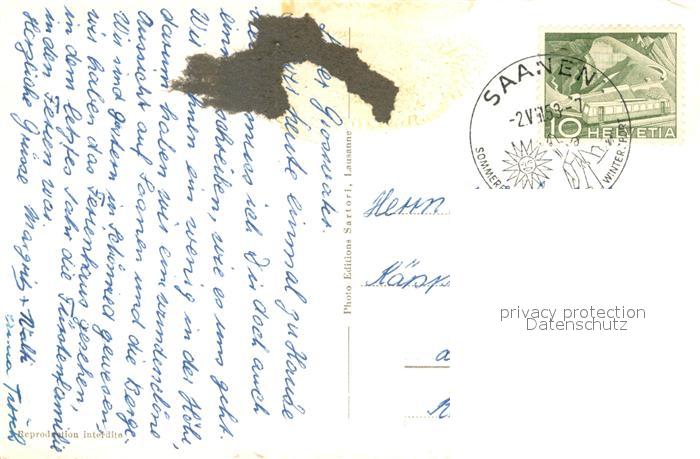 Grossvater.
heute einmal zu Hause
muss ich Dir doch auch
schreiben, wie es uns geht.
Wir ein wenig in der Höhe,
darum haben wir eine wunderschöne
Aussicht auf Saanen und die Berge.
Wir sind gestern in Schönried gewesen,
wir haben das Ferienhaus gesehen,
in dem letztes Jahr die Fürstenfamilie
in den Ferien war.
Herzliche Grüsse Margrit + Walti
Reproduction interdite
Photo Editions Sartori, Lausanne
SAANEN
-2.VII.53-7
SOMMER
WINTER-
10 HELVETIA
Herrn
privacy protection
Datenschutz